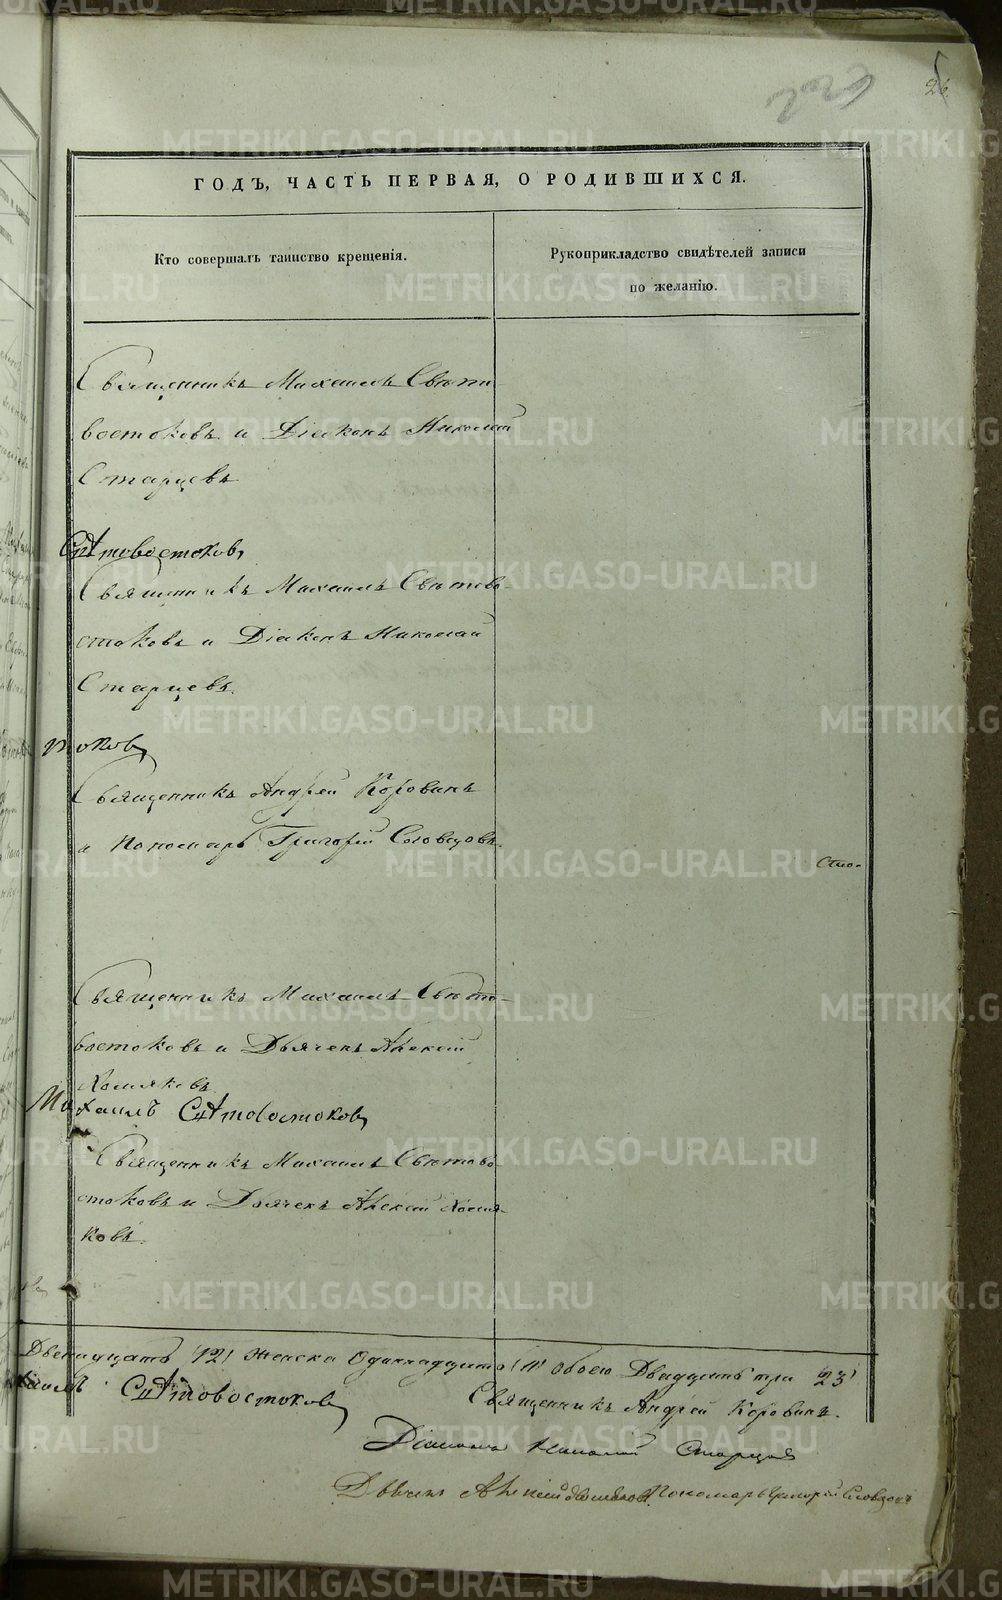 26.
ГОДЪ, ЧАСТЬ ПЕРВАЯ, О РОДИВШИХСЯ.
Кто совершалъ таинство крещенія.
Рукоприкладство свидѣтелей записи
по желанію.
Священникъ Михаилъ Свѣто
востоковъ и Діаконъ Николай
Старцевъ
Святовостоковъ
Священникъ Михаилъ Свѣтово-
стоковъ и Діаконъ Николай
Старцевъ.
токовъ
Священникъ Андрей Коровинъ
и Пономарь Григорій Словцовъ.
Сто-
Священникъ Михаилъ Свѣто-
востоковъ и Дьячекъ Алексій
Хомяковъ
Михаилъ Святовостоковъ
Священникъ Михаилъ Свѣтово-
стоковъ и Дьячекъ Алексій Хомя-
ковъ.
Двенадцать 12! Женска Одиннадцать 11! Обоего Двадцать три 23!
Святовостоковъ
Священникъ Андрей Коровинъ.
Діаконъ Николай Старцевъ
Дьячекъ Алексій Хомяковъ Пономарь Григорій Словцовъ
METRIKI.GASO-URAL.RU